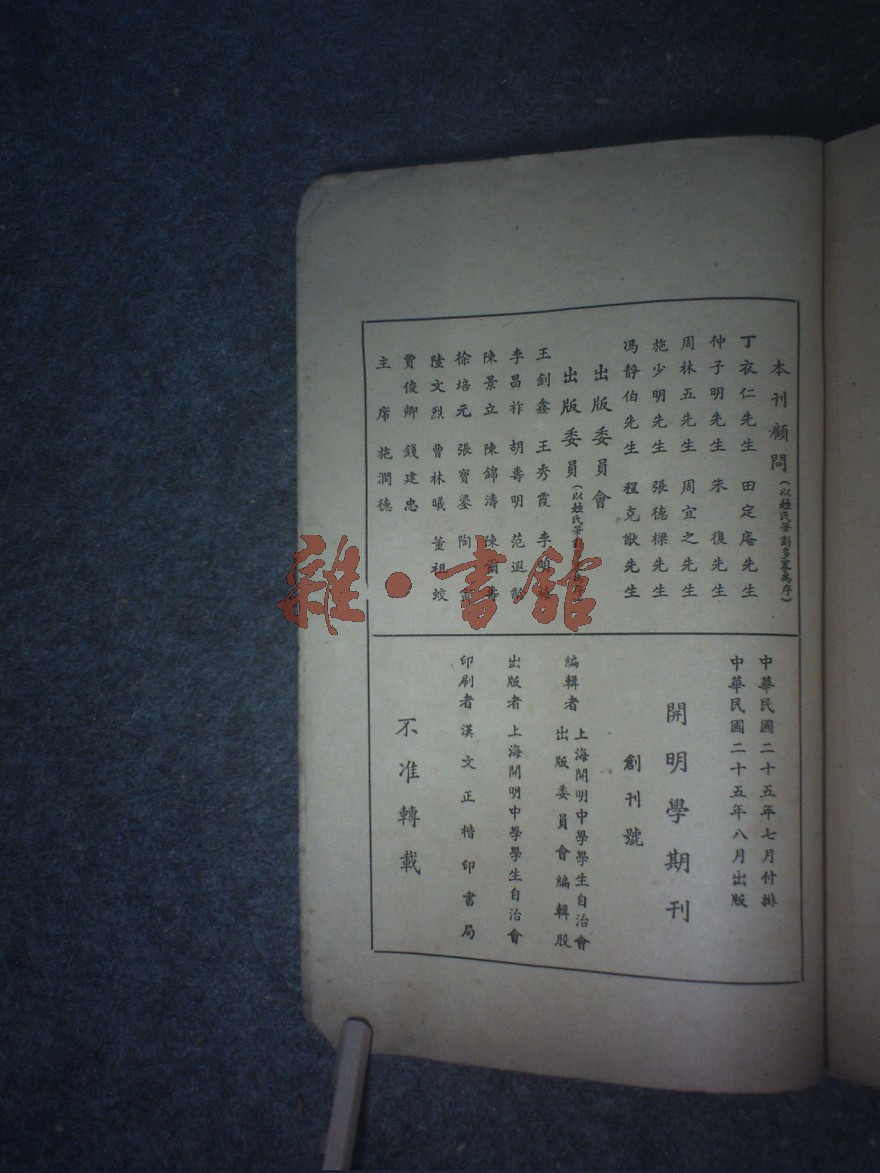 本刊顧問(以姓氏筆劃多寡為序)
丁衣仁先生 田定庵先生
仲子明先生 朱復先生
周林五先生 周宜之先生
施少明先生 張德樑先生
馮靜伯先生 程克猷先生
出版委員會
出版委員(以姓氏筆劃 為序)
王釗鑫 王秀霞 李明
李昌祚 胡壽明 范遐齡
陳景立 陳錦濤 陳爾壽
徐培元 張寶鎏 陶
陸文烈 曹林曦 董祖蛟
賈俊卿 錢建忠
主席 施潤德
中華民國二十五年七月付排
中華民國二十五年八月出版
開明學期刊
創刊號
編輯者 上海開明中學學生自治會
出版委員會編輯股
出版者 上海開明中學學生自治會
印刷者 漢文正楷印書局
不准轉載
雜·書館